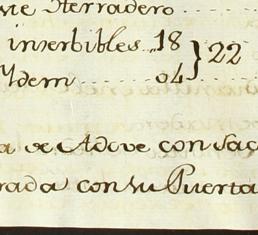 vie Herradero
inserbibles.. 18 } 22
Ydem ....... 04
a de Adove con sac
rada con su Puerta